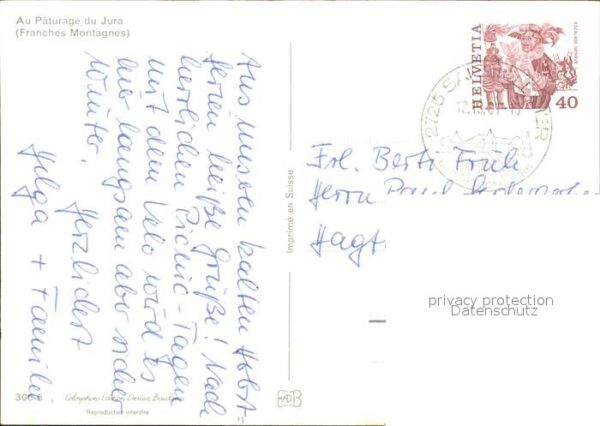 Au Pâturage du Jura
(Franches Montagnes)
Aus unseren kalten Herbst-
ferien heiße Grüße! Nach
herrlichen Picnic-Tagen
mit dem Velo wird es
hier langsam aber sicher
Winter.
Herzlichst
Helga + Familie
306-6
Reproduction interdite
Imprimé en Suisse
HELVETIA
ESCALADE GENÈVE
40
2726
Frl. Berti Früh
Herrn
Hagt
privacy protection
Datenschutz